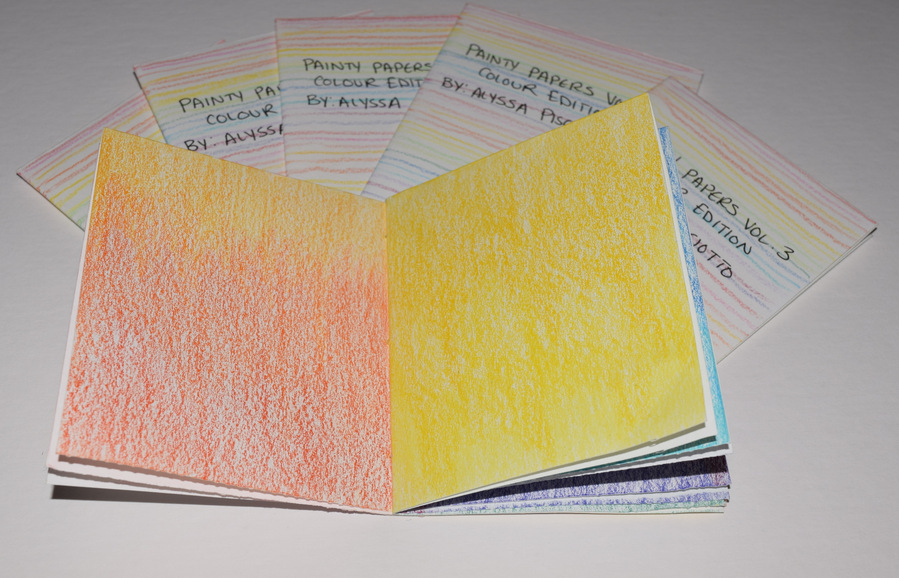 PAINTY PA
COLOUR
BY: ALYSSA
PAINTY PAPERS
COLOUR EDIT
BY: ALYSSA
PAINTY PAPERS VO
COLOUR EDITION
BY: ALYSSA PISC
PAPERS VOL. 3
EDITION
IOTTO